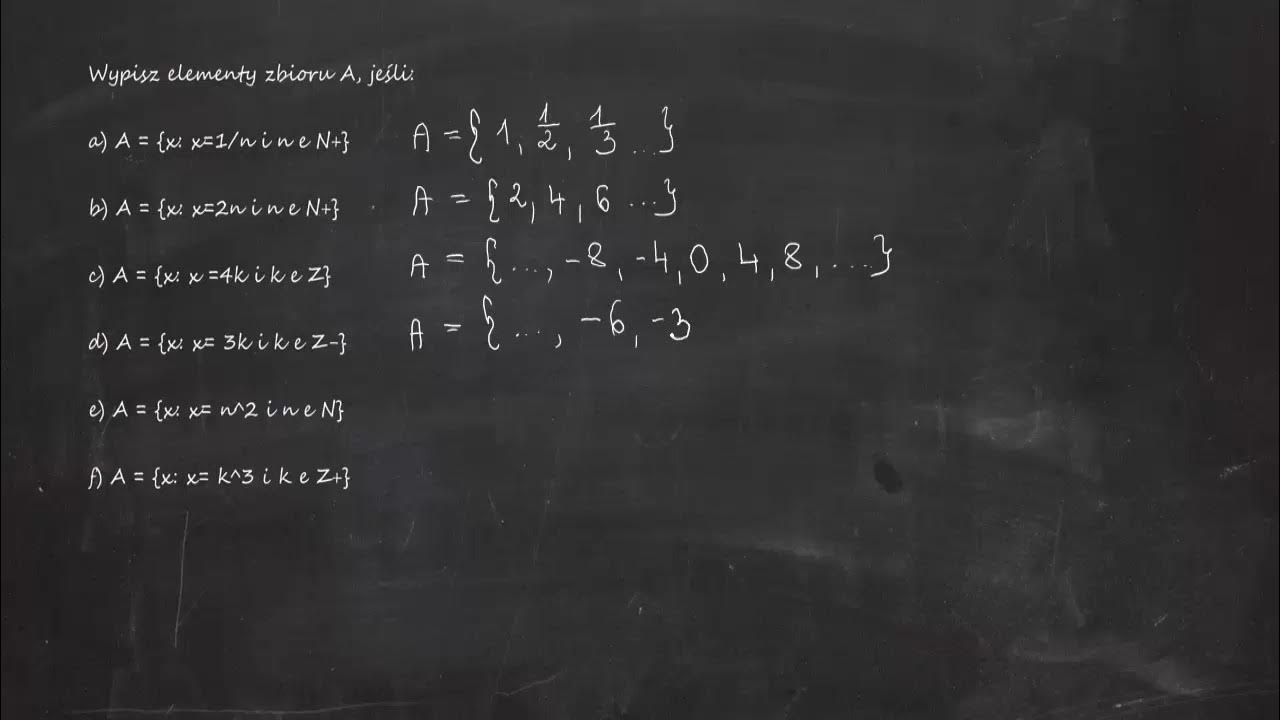 Wypisz elementy zbioru A, jeśli:
a) A = {x: x=1/n i n e N+} A = { 1, 1/2, 1/3 ...}
b) A = {x: x=2n i n e N+} A = {2, 4, 6 ...}
c) A = {x: x =4k i k e Z} A = {..., -8, -4, 0, 4, 8, ...}
d) A = {x: x= 3k i k e Z-} A = {..., -6, -3
e) A = {x: x= n^2 i n e N}
f) A = {x: x= k^3 i k e Z+}